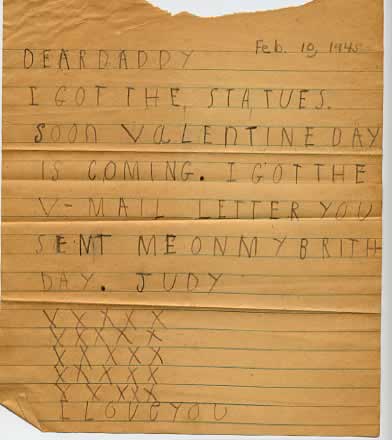 Feb. 10, 1945
DEAR DADDY
I GOT THE STATUES.
Soon VALENTINE DAY
IS COMING. I GOT THE
V-MAIL LETTER YOU
SENT ME ON MY BRITH
DAY. JUDY
X X X X X
X X X X X
X X X X X
X X X X X
X X X X X
I LOVE YOU